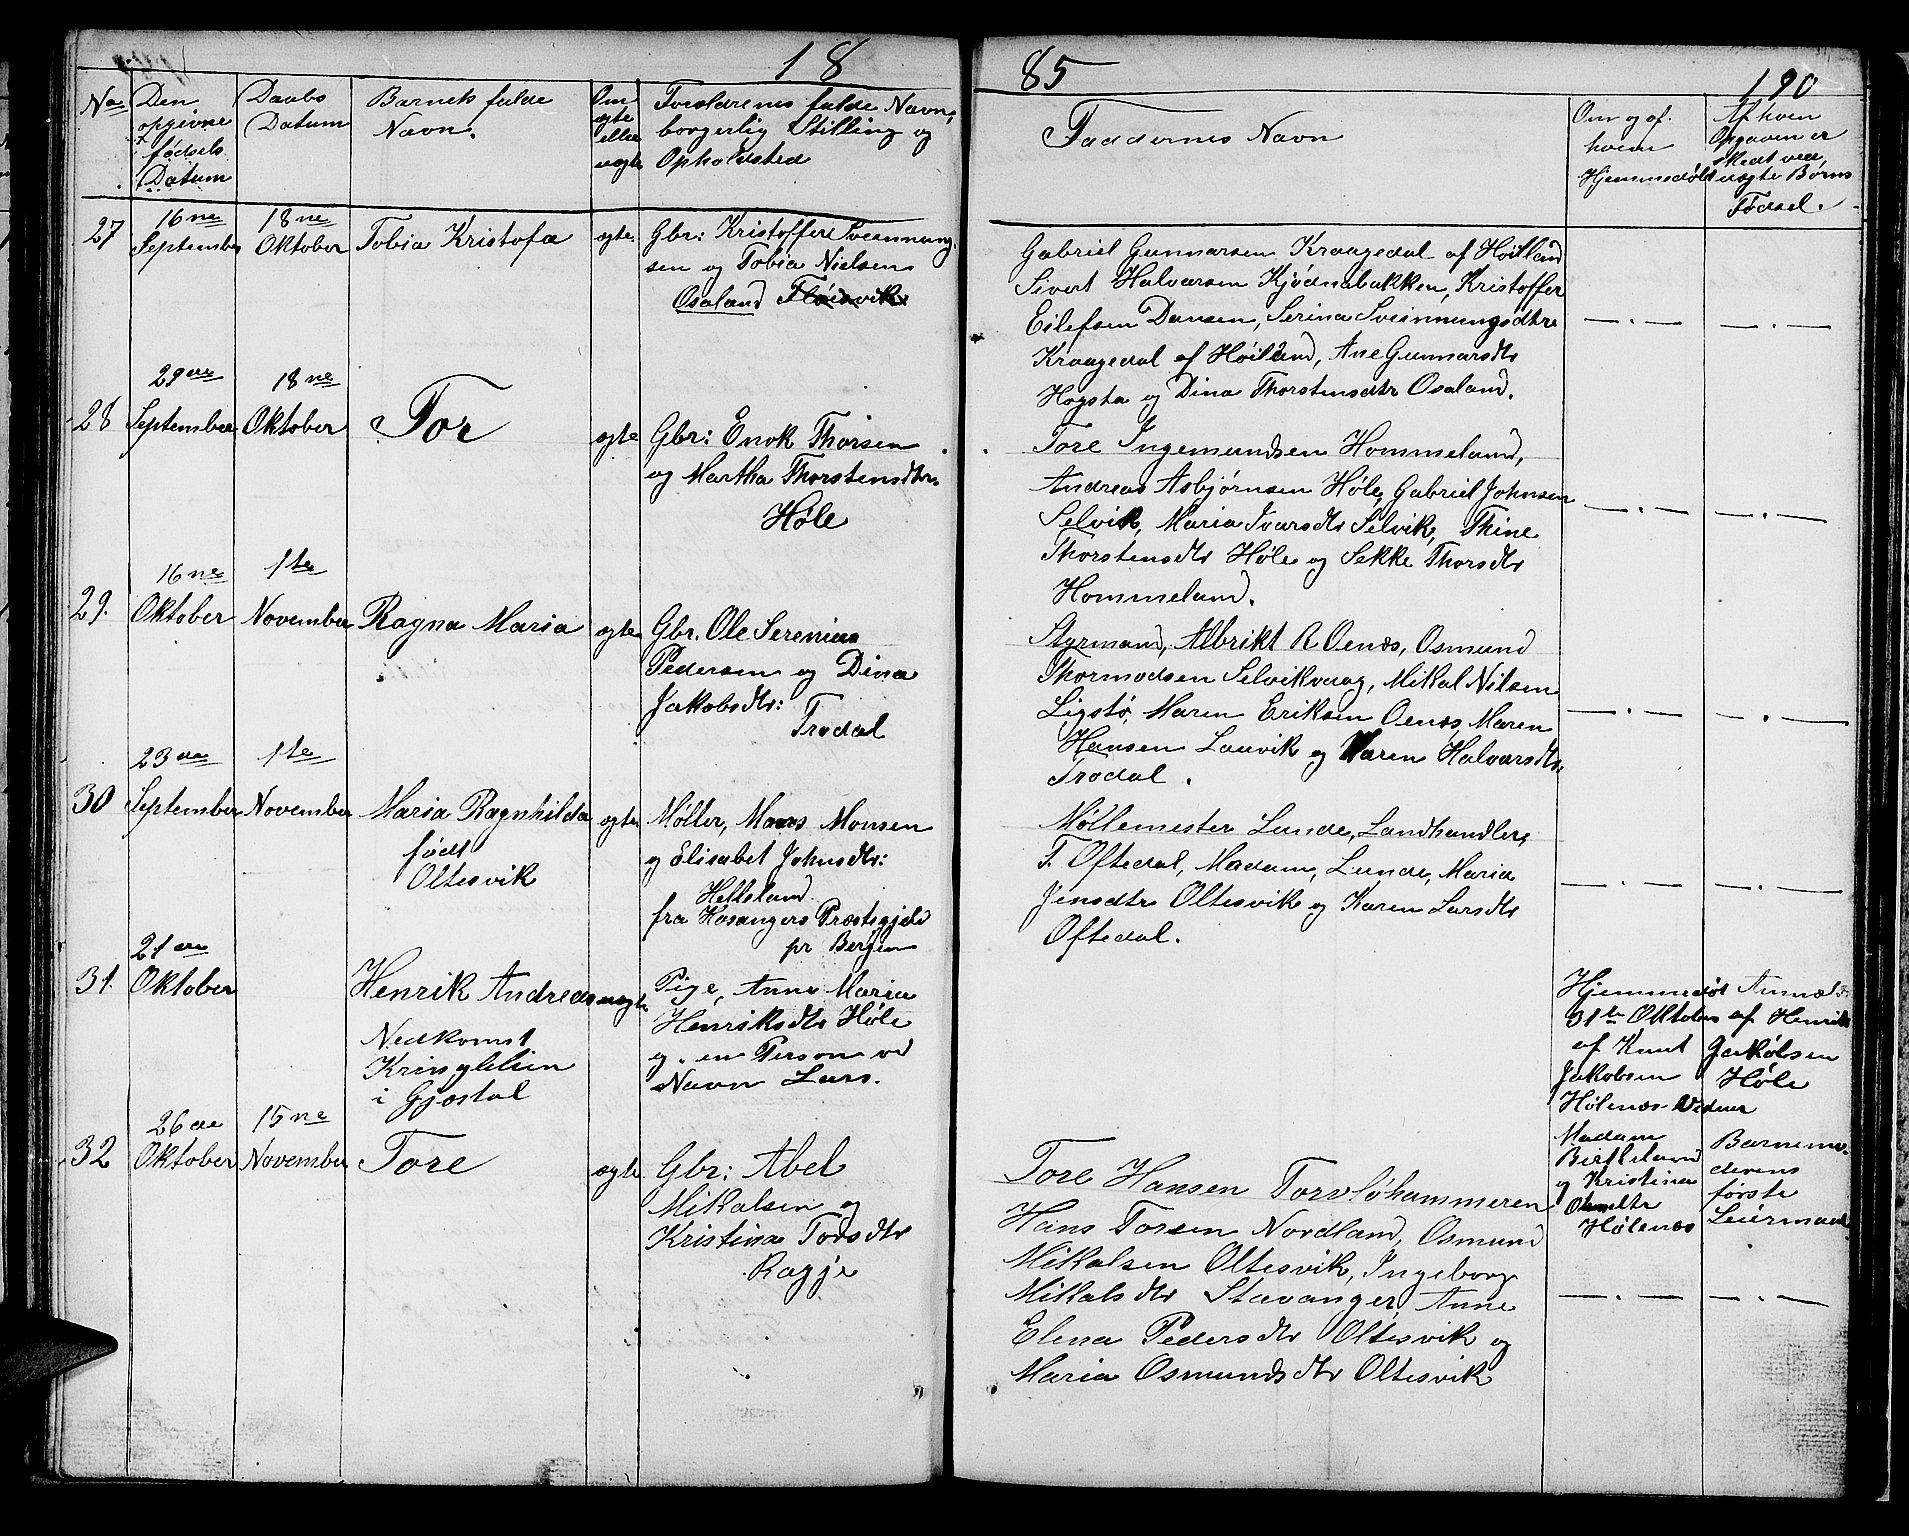 18
85
190
No
Den opgivne fødsels Datum
Daabs Datum
Barnets fulde Navn.
Om ægte eller uægte
Forældrenes fulde Navn, borgerlig Stilling og Opholdsted
Faddernes Navn
Om og af hvem Hjemmedøbt
Af hvem Opgaven er skedt ved uægte Børns Fødsel.
27
16ne September
18ne Oktober
Tobia Kristofa
ægte
Gbr: Kristoffer Sveinnung-
sen og Tobia Nielsen
Osaland Fløisvik
Gabriel Gunnarsen Kraagedal af Høiland
Sivert Halvarsen Kjødnabakken, Kristoffer
Eilefsen Dansen, Serina Sveinnungsdtr
Kraagedal af Høiland, Ane Gunnarsdtr
Hogsta og Dina Thorstensdtr Osaland.
— . —
— . —
28
29de September
18ne Oktober
Tor
ægte
Gbr: Enok Thorsen
og Martha Thorstensdtr.
Høle
Tore Ingemundsen Hommeland,
Andreas Asbjørnsen Høle, Gabriel Johnsen
Selvik, Maria Ivarsdtr Selvik, Thine
Thorstensdtr Høle og Sekke Thorsdtr
Hommeland.
— . —
— . —
29.
16ne Oktober
1te November
Ragna Maria
ægte
Gbr. Ole Serenius
Pedersen og Dina
Jakobsdtr:
Trodal
Styrmand, Albrikt R Oenæs, Osmund
Thormodsen Selvikvaag, Mikal Nilsen
Ligstø, Maren Eriksen Oenæs, Maren
Hansen Lauvik og Karen Halvarsdtr.
Trodal.
— . —
— . —
30
23de September
1te November
Maria Ragnhilda
født
Oltesvik
ægte
Møller, Mons Monsen
og Elisabet Johnsdtr:
Helleland
fra Hosangers Præstegjeld
pr Bergen
Møllemester Lunde, Landhandler,
T. Oftedal, Madam, Lunde, Maria
Jensdtr Oltesvik og Karen Larsdtr
Oftedal.
— . —
— . —
31.
21de Oktober
Henrik Andreas
Nedkomst
Kringlelien
i Gjestal
uægte
Pige, Anne Maria
Henriksdtr Høle
og en Person ved
Navn Lars.
Hjemmedøt
31te Oktober
af Knut
Jakobsen
Hølenæs Vidner
Madam
Birkeland
og Kristina
Hølenæs
af Henrik
Jakobsen
Høle
Barnemo-
derens
første
Leiermaal
32
26de Oktober
15ne November
Tore
ægte
Gbr: Abel
Mikalsen og
Kristina Torsdtr
Ragje
Tore Hansen Torvløhammeren
Hans Torsen Nordland, Osmund
Mikalsen Oltesvik, Ingeborg
Mikalsdtr Stavanger, Anne
Elena Pedersdtr Oltesvik og
Maria Osmundsdtr Oltesvik
— . —
— . —